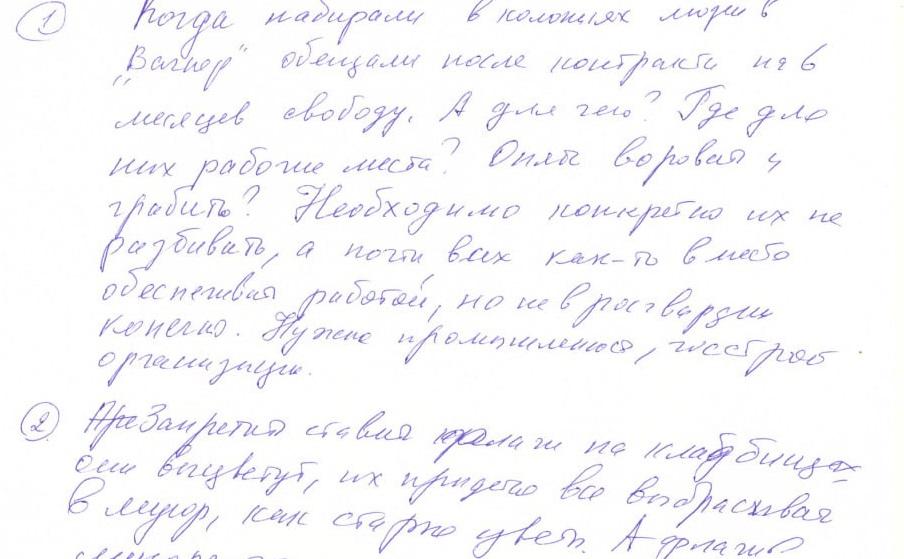 ① Когда набирали в колониях людей в
„Вагнер" обещали после контракта на 6
месяцев свободу. А для чего? Где для
них рабочие места? Опять воровать и
грабить? Необходимо конкретно их не
разбивать, а почти всех как-то вместо
обеспечивая работой, но не в росгвардии
конечно. Нужна промышленность,
организации.
② Запретить ставить флаги на кладбищах
они выцветут, их придётся все выбрасывать
в мусор, как старые цветы. А флаги